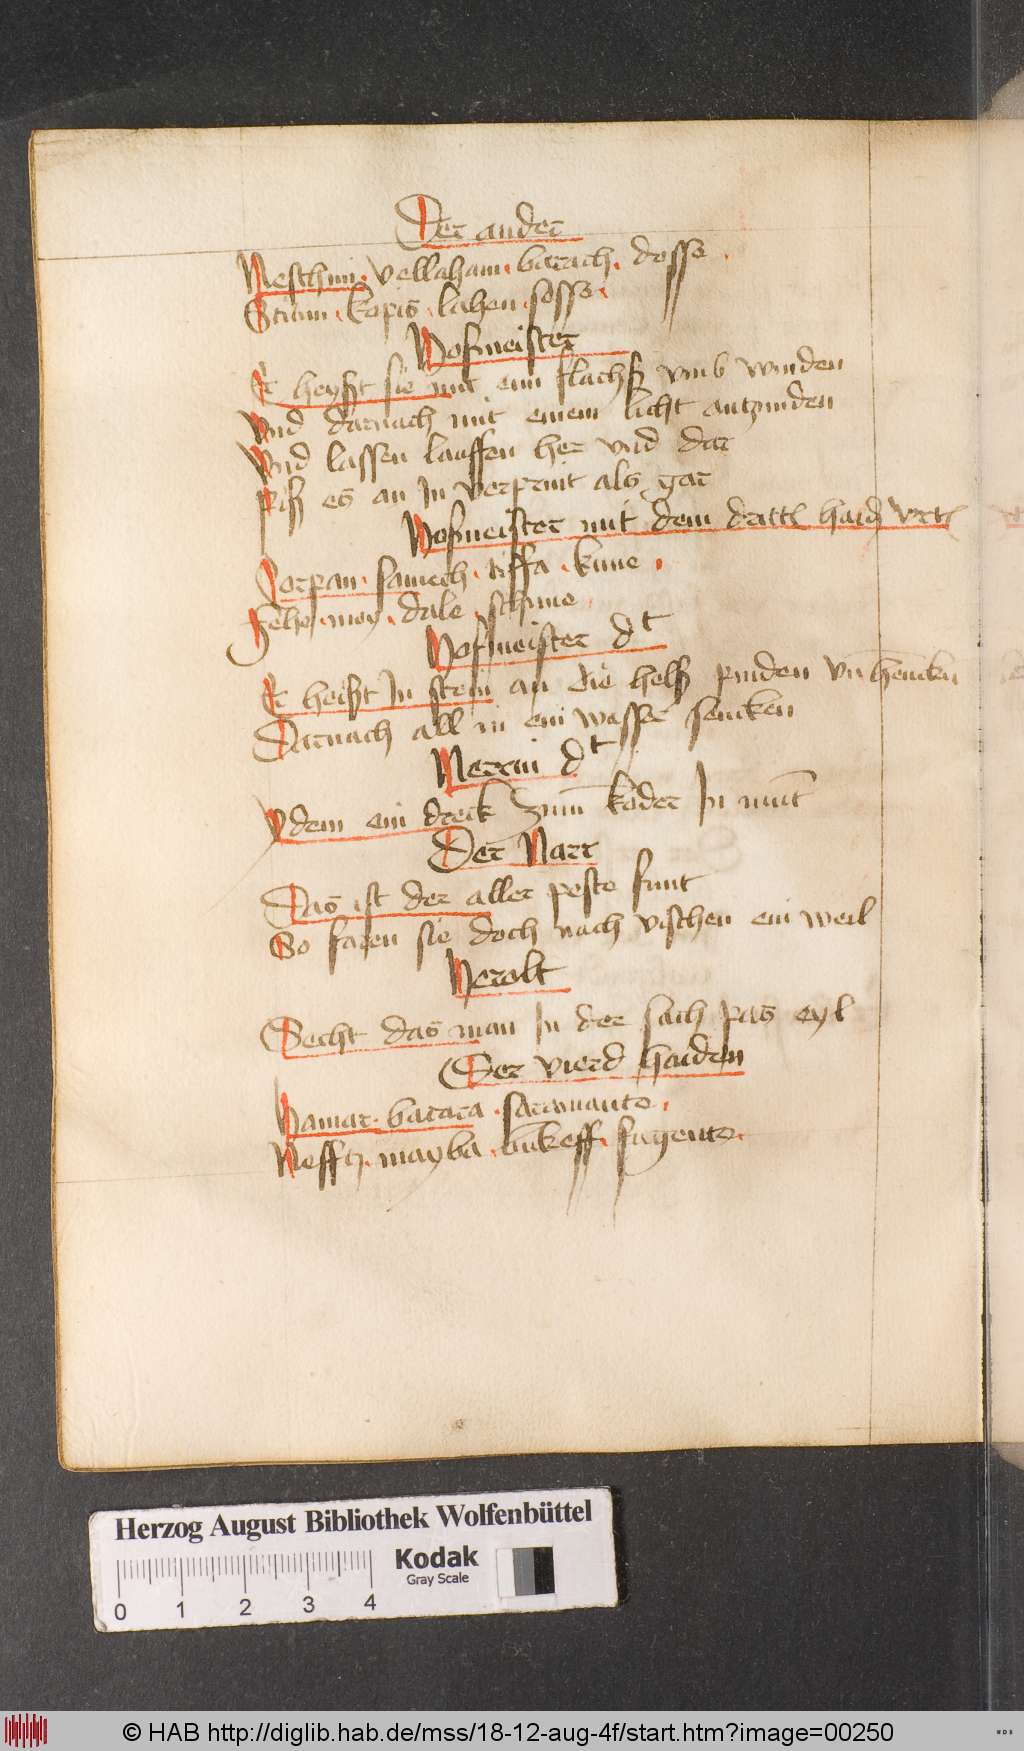 Der ander
Neschmi . vellaham . barach . dosse .
Strim . kopis . lahen . sosse .
Hofmeister
Er heyst sie mit eim flachß vmb winden
Vnd darnach mit einem licht antzunden
Vnd lassen lauffen her vnd dar
Piß es an In verprint als gar
Hofmeister mit dem haid
Corpan . samech . kune .
moy . dale . schme
Hofmeister dt
Er heißt In stein an die helß pinden vn hencken
Darnach all in ein wasser sencken
Nerrin dt
Ydem ein dreck zum koder In munt
Der Narr
Das ist der aller peste funt
So faren sie doch nach vischen ein weil
Herolt
Secht das man In der sach pas eyl
Der vierd haiden
Hamar . barara .
mayba . fugente .
Herzog August Bibliothek Wolfenbüttel
Kodak
Gray Scale
0 1 2 3 4
© HAB http://diglib.hab.de/mss/18-12-aug-4f/start.htm?image=00250